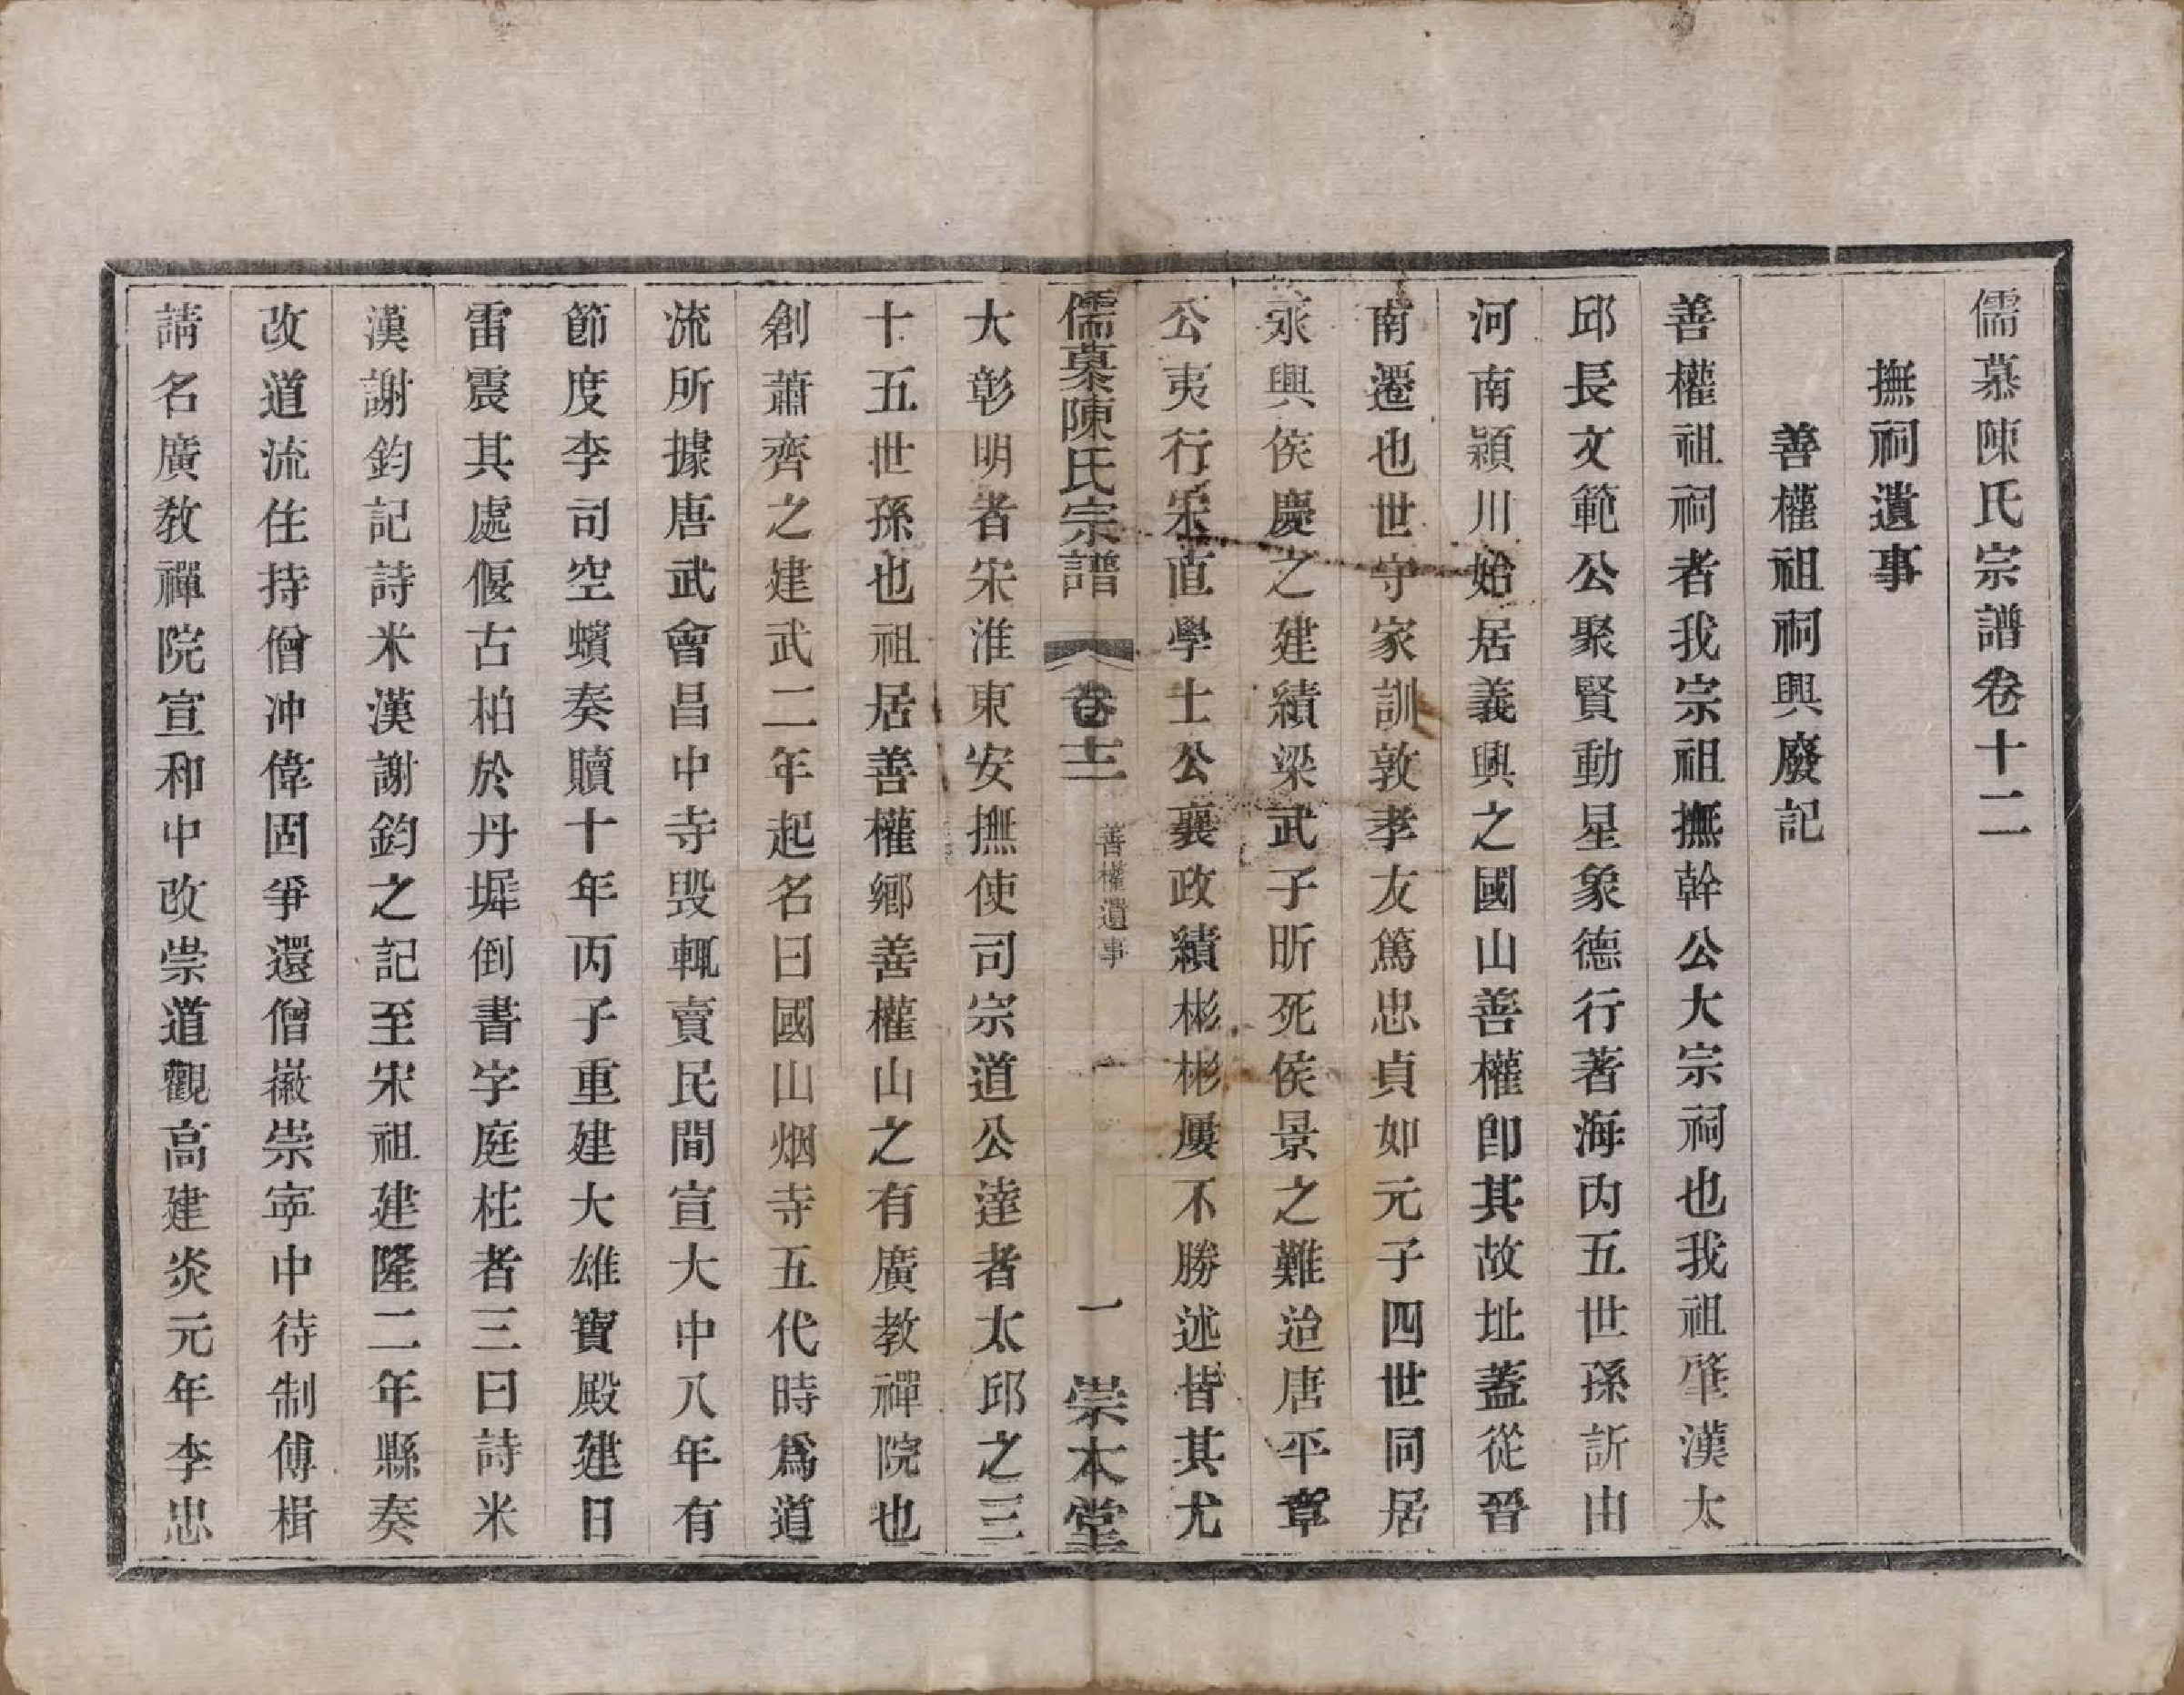 儒慕陳氏宗譜卷十二
撫祠遺事
善權祖祠興廢記
善權祖祠者我宗祖撫幹公大宗祠也我祖肇漢太
邱長文範公聚賢動星象德行著海內五世孫訢由
河南潁川始居義興之國山善權卽其故址蓋從晉
南遷也世守家訓敦孝友篤忠貞如元子四世同居
永興侯慶之建績梁武子昕死侯景之難迨唐平章
公夷行宋直學士公襄政績彬彬屢不勝述皆其尤
儒慕陳氏宗譜
卷十二
善權遺事
一
崇本堂
大彰明者宋淮東安撫使司宗道公達者太邱之三
十五世孫也祖居善權鄉善權山之有廣教禪院也
創蕭齊之建武二年起名曰國山烟寺五代時爲道
流所據唐武會昌中寺毁輒賣民間宣大中八年有
節度李司空蠙奏贖十年丙子重建大雄寶殿建日
雷震其處偃古柏於丹墀倒書字庭柱者三曰詩米
漢謝鈞記詩米漢謝鈞之記至宋祖建隆二年縣奏
改道流住持僧冲偉固爭還僧徽崇寧中待制傅楫
請名廣敎禪院宣和中改崇道觀高建炎元年李忠